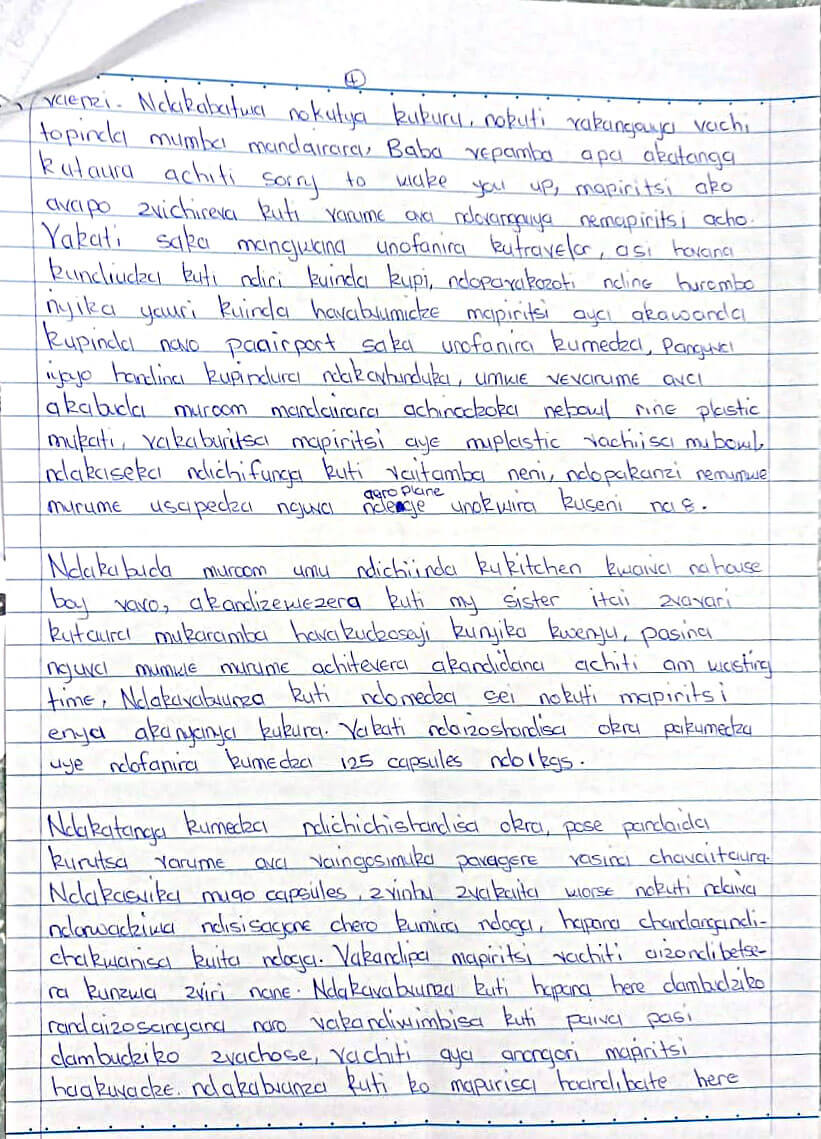 4
vaenzi. Ndakabatwa nokutya kukuru, nokuti vakangauya vachi
topinda mumba mandairara, Baba vepamba apa akatanga
kutaura achiti sorry to wake you up, mapiritsi ako
avapo zvichireva kuti varume ava ndovangauya nemapiritsi acho.
Vakati saka mangwana unofanira kutravelar, asi havana
kundiudza kuti ndiri kuinda kupi, ndopavakazoti ndine hurombo
nyika yauri kuinda havabvumidze mapiritsi aya akawanda
kupinda navo paairport saka unofanira kumedza, Panguva
iyoyo handina kupindura ndakavhunduka, umwe vevarume ava
akabuda muroom mandairara achinodzoka nebowl rine plastic
mukati, vakaburitsa mapiritsi aye muplastic vachiisa mubowl,
ndakaseka ndichifunga kuti vaitamba neni, ndopakanzi nemumwe
agroplane
murume usapedza nguva ndege unokwira kuseni na 8.
Ndakabuda muroom umu ndichiinda kukitchen kwaiva nahouse
boy vavo, akandizewezera kuti my sister itai zvavari
kutaura mukaramba havakudzoseyi kunyika kwenyu, pasina
nguva mumwe murume achitevera akandidana achiti am wasting
time, Ndakavabvunza kuti ndomedza sei nokuti mapiritsi
enya akanyanya kukura. Vakati ndaizoshandisa okra pakumedza
uye ndofanira kumedza 125 capsules ndo1kgs.
Ndakatanga kumedza ndichichishandisa okra, pose pandaida
kurutsa varume ava vaingosimuka pavagere vasina chavaitaura.
Ndakasvika mu90 capsules, zvinhu zvakaita worse nokuti ndaiva
ndarwadziwa ndisisagone chero kumira ndoga, hapana chandangandi-
chakwanisa kuita ndoga. Vakandipa mapiritsi vachiti aizondibetse-
ra kunzwa zviri nane. Ndakavabvunza kuti hapana here dambudziko
randaizosangana naro vakandivimbisa kuti paiva pasi
dambudziko zvachose, vachiti aya anongori mapiritsi
haakuvadze. ndakabvunza kuti ko mapurisa haandibate here